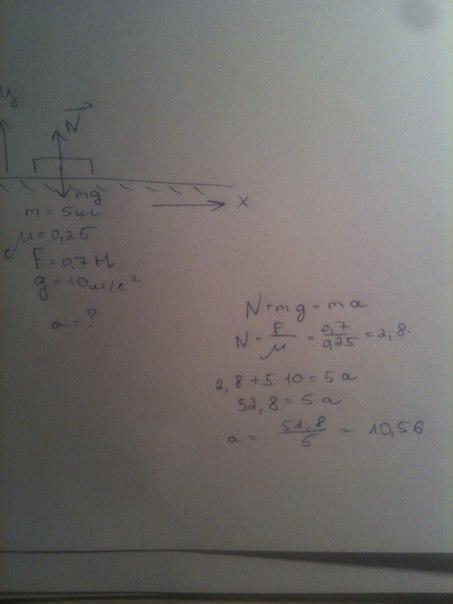 y
N
mg
x
m = 5 кг
μ = 0,25
F = 0,7 Н.
g = 10 м/с².
a = ?
N + mg = ma
N = F/μ = 0,7/0,25 = 2,8.
2,8 + 5·10 = 5a
52,8 = 5a
a = 52,8/5 = 10,56